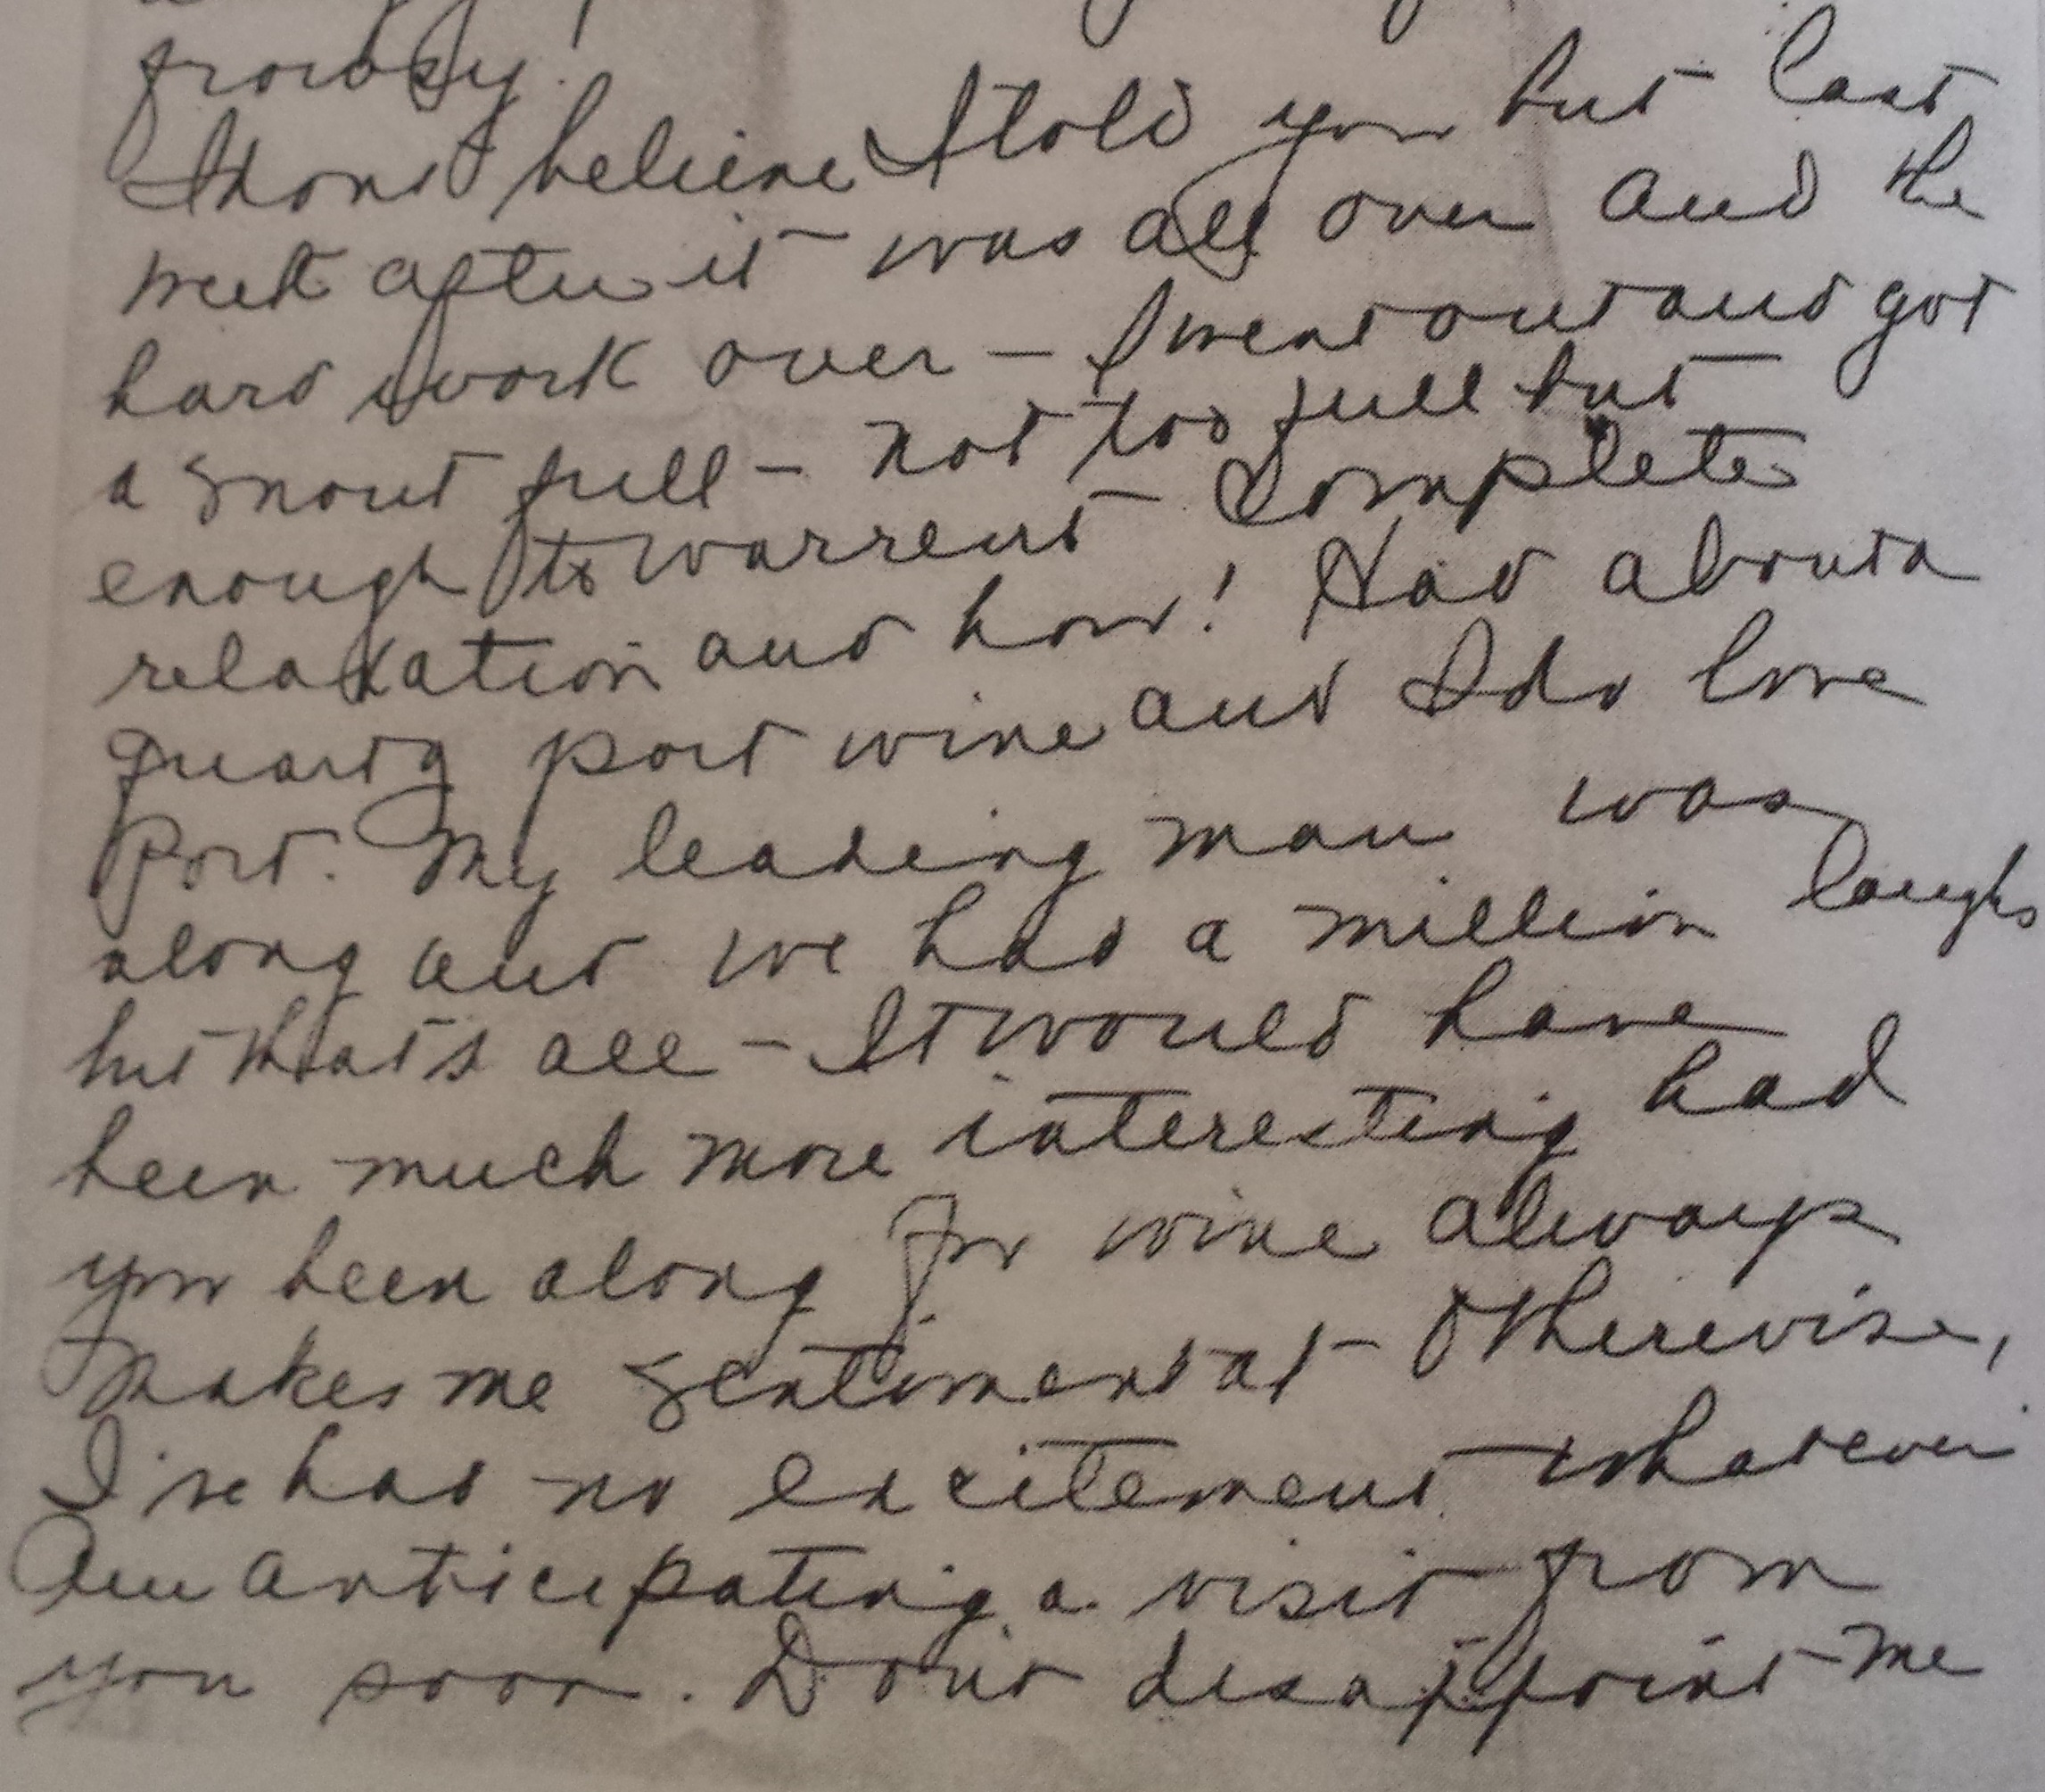 frowsy.
I dont believe I told you but last
week after it was all over and the
hard work over — I went out and got
a snout full — not too full but
enough to warrent complete
relaxation and how! Had about a
quart of port wine and I do love
Port. My leading man was
along and we had a million laughs
but that's all — It would have
been much more interesting had
you been along for wine always
makes me sentimental — Otherwise,
I've had no excitement whatever
Am anticipating a visit from
you soon. Don't disappoint me